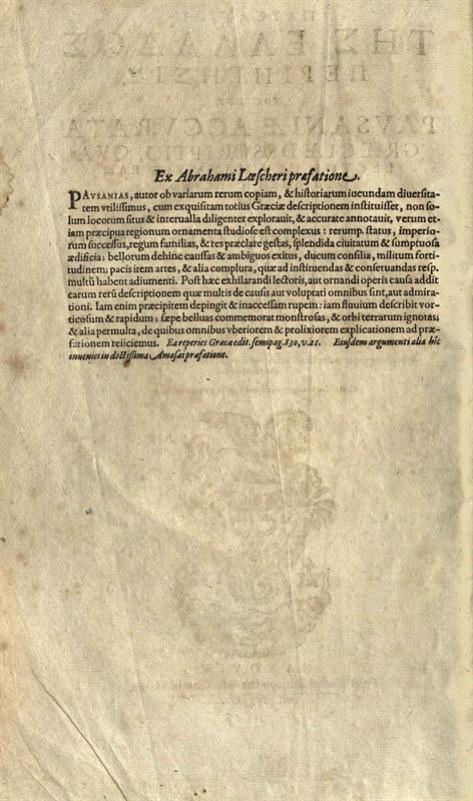 Ex Abrahami Lœscheri præfatione.
PAVSANIAS, autor ob variarum rerum copiam, & historiarum iucundam diuersita-
tem vtilissimus, cum exquisitam totius Græciæ descriptionem instituisset, non so-
lum locorum situs & interualla diligenter explorauit, & accurate annotauit, verum et-
iam præcipua regionum ornamenta studiose est complexus : rerump. status, imperio-
rum successus, regum familias, & res præclare gestas, splendida ciuitatum & sumptuosa
ædificia: bellorum dehinc caussas & ambiguos exitus, ducum consilia, militum forti-
tudinem; pacis item artes, & alia complura, quæ ad instituendas & conseruandas resp.
multū habent adiumenti. Post hæc exhilarandi lectoris, aut ornandi operis causa addit
earum rerū descriptionem quæ multis de causis aut voluptati omnibus sint, aut admira-
tioni. Iam enim præcipitem depingit & inaccessam rupem : iam fluuium describit vor-
ticosum & rapidum : sæpe belluas commemorat monstrosas, & orbi terrarum ignotas;
& alia permulta, de quibus omnibus vberiorem & prolixiorem explicationem ad præ-
fationem reiiciemus. Ea reperies Græca edit. semi pag. 830, v. 21. Eiusdem argumenti alia hîc
inuenies in doctissima Amasæi præfatione.